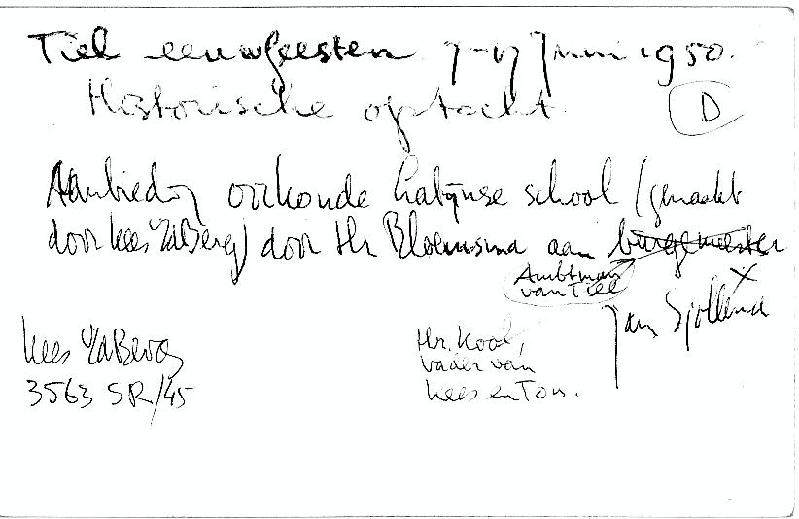 Tiel eeuwfeesten 7-17 Juni 1950.
Historische optocht. D
Aanbieding oorkonde Latijnse school (gemaakt
door Kees vd Berg) door Hr Bloemsma aan burgemeester
Ambtman
van Tiel
X
Jan Sjollema
Kees vd Berg
3563 SR/45
Hr. Kool,
vader van
Kees en Ton.